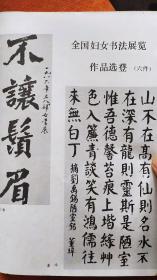 全国妇女书法展览
作品选登（六件）
山不在高有仙則名水不
在深有龍則靈斯是陋室
惟吾德馨苔痕上堦綠草
色入簾青談笑有鴻儒往
來無白丁 摘劉禹錫陋室銘
不讓鬚眉